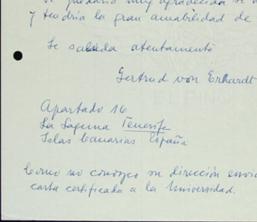 le quedaría muy agradecida si
y tendría la gran amabilidad de
Le saluda atentamente
Gertrud von Erhardt
Apartado 16
La Laguna Tenerife
Islas Canarias España
Como no conozco su dirección envío
carta certificada a la Universidad.